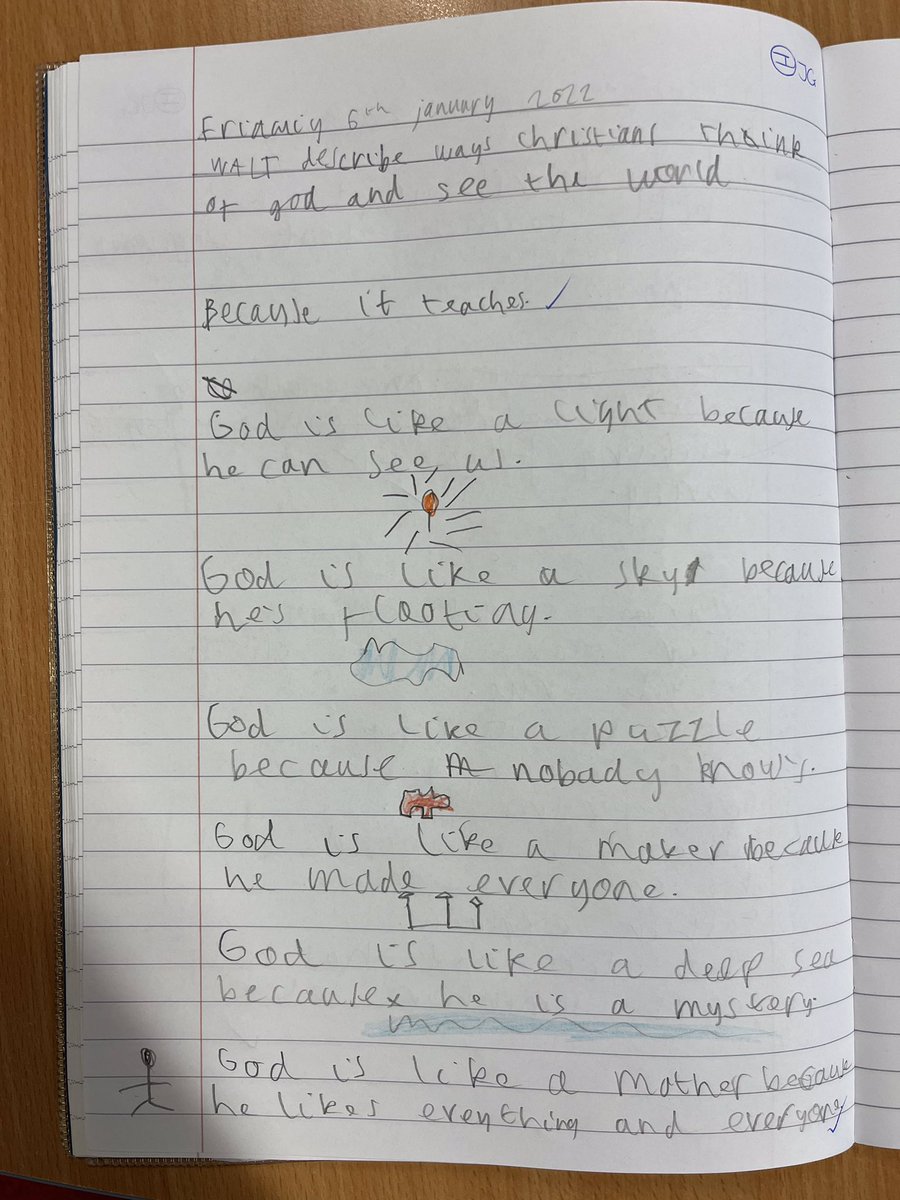 I JG
Friday 6th january 2022
WALT describe ways christians thoink
of god and see the world
Because it teaches.
God is like a light because
he can see us.
God is like a sky because
he's floating.
God is like a puzzle
because nobady knows.
God is like a maker because
he made everyone.
God is like a deep sea
because he is a mystery.
God is like a mother because
he likes everything and everyone